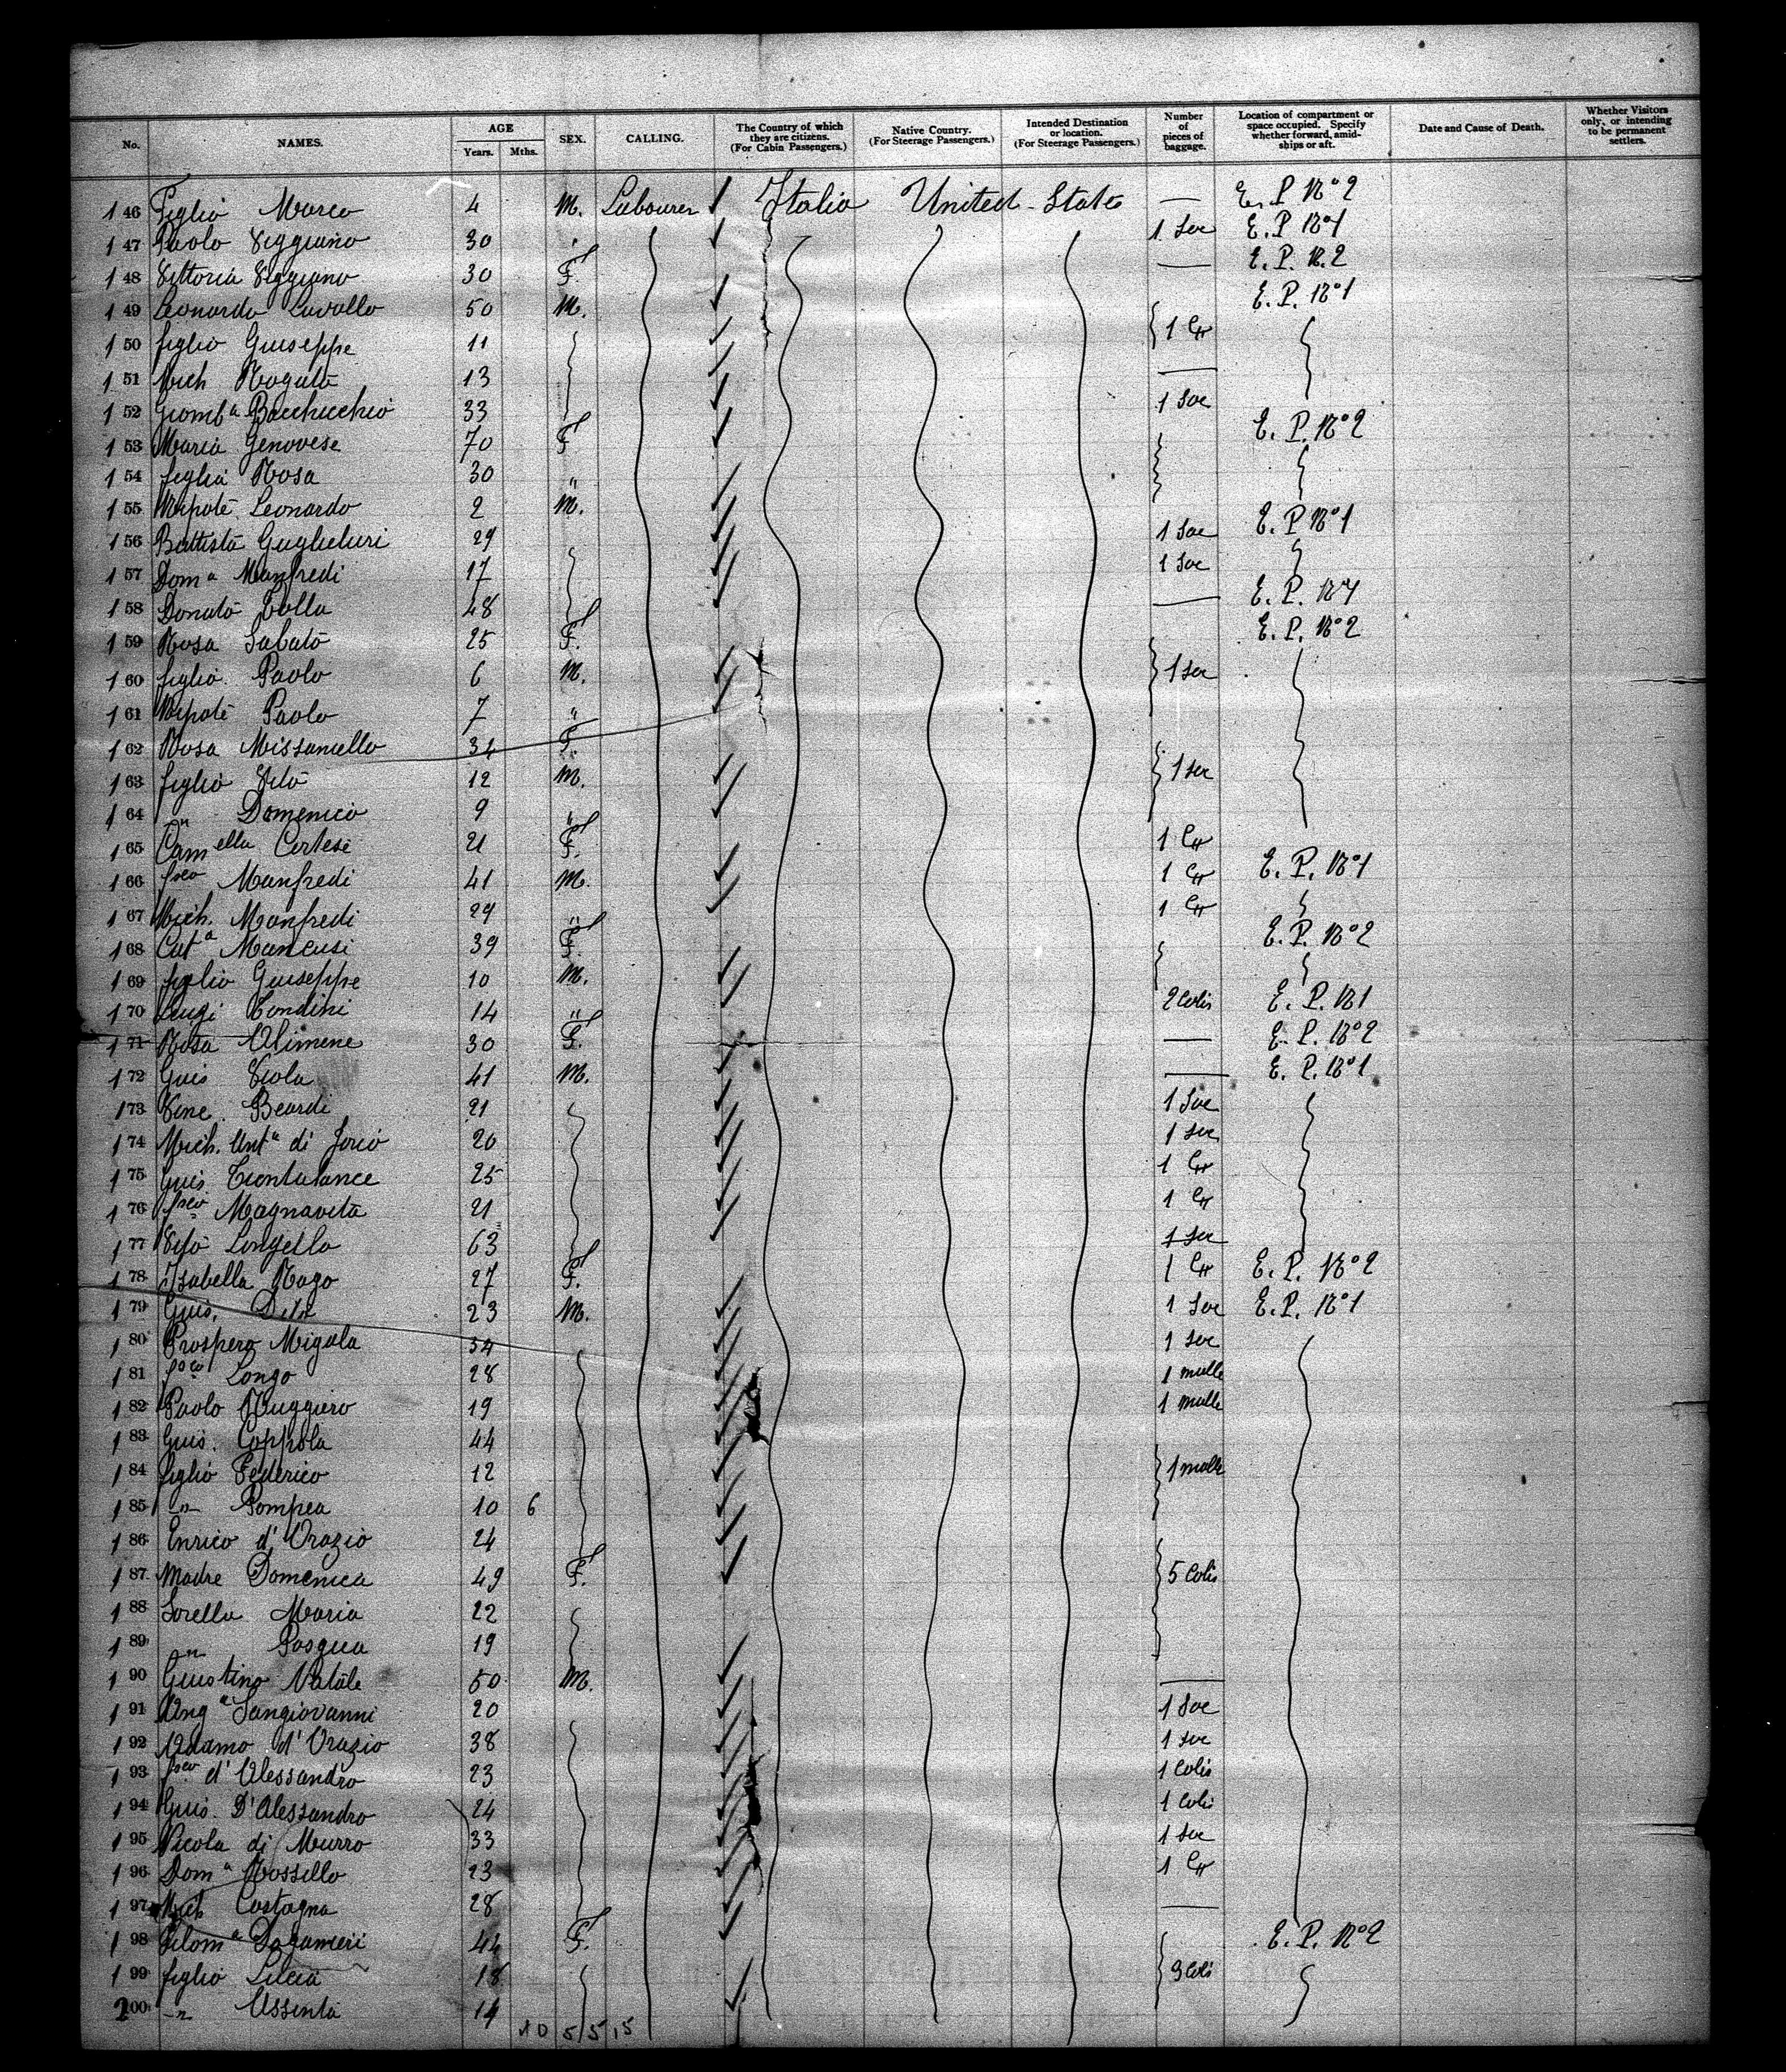 No. NAMES. AGE Years. Mths. SEX. CALLING. The Country of which they are citizens. (For Cabin Passengers.) Native Country. (For Steerage Passengers.) Intended Destination or location. (For Steerage Passengers.) Number of pieces of baggage. Location of compartment or space occupied. Specify whether forward, amid-ships or aft. Date and Cause of Death. Whether Visitors only, or intending to be permanent settlers.
146 Figlio Marco 4 M. Labourer Italia United States — E. P. No 2
147 Paolo Viggiano 30 " 1 Sac E. P No 1
148 Vittoria Viggiano 30 F. — E. P. N. 2
149 Leonardo Lavallo 50 M. E. P. No 1
150 figlio Giuseppe 11 1 Cr
151 Mich Rogato 13 —
152 Giomb a Bacchicchio 33 1 Sac
153 Maria Genovese 70 F. E. P. No 2
154 figlia Rosa 30 "
155 Nipote Leonardo 2 M.
156 Battista Guglielmi 29 1 Sac E. P No 1
157 Dom a Manfredi 17 1 Sac
158 Donato Lolla 48 — E. P. No 1
159 Rosa Sabato 25 F. E. P. No 2
160 figlio Paolo 6 M. 1 Sac
161 Nipote Paolo 7 "
162 Rosa Missaniello 34 F.
163 figlio Vito 12 M. 1 Sac
164 " Domenico 9 "
165 Carm ella Cortese 21 F. 1 Cr
166 fsco Manfredi 41 M. 1 Cr E. P. No 1
167 Mich. Manfredi 29 " 1 Cr
168 Cat a Mancusi 39 F. E. P. No 2
169 figlio Giuseppe 10 M.
170 Luigi Tondini 14 " 2 Colis E. P. N 1
171 Rosa Alimene 30 F. — E. P. No 2
172 Guis Viola 41 M. — E. P. No 1
173 Vinc. Beardi 21 1 Sac
174 Mich. Ant a di Jorio 20 1 Sac
175 Guis 25 1 Cr
176 fsco Magnavita 21 1 Cr
177 Vito Longella 63 1 Sac
178 Isabella Rago 27 F. 1 Cr E. P. No 2
179 Guis. 23 M. 1 Sac E. P. No 1
180 Prospero Migala 34 1 Sac
181 fsco Longo 28 1 malle
182 Paolo Ruggiero 19 1 malle
183 Guis. Coppola 44
184 figlio Federico 12 1 malle
185 " Pompea 10 6
186 Enrico d'Orazio 24
187 Madre Domenica 49 F. 5 Colis
188 Sorella Maria 22
189 " Pasqua 19
190 Giustino Natale 50 M. —
191 Ang a Sangiovanni 20 1 Sac
192 Adamo d'Orazio 38 1 Sac
193 fsco d'Alessandro 23 1 Colis
194 Guis. D'Alessandro 24 1 Colis
195 Nicola di Murro 33 1 Sac
196 Dom a Rossillo 23 1 Cr
197 Castagna 28 —
198 Filom a 44 F. E. P. No 2
199 figlia Lucia 18 3 Colis
200 " Assunta 14
10 5/5 15